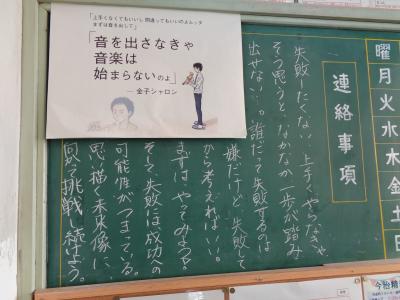 「上手くなくてもいいし 間違ってもいいのよムッタ
まずは音を出して」
「音を出さなきゃ
音楽は
始まらないのよ」
― 金子シャロン
曜月火水木金土日
連絡事項
失敗したくない、上手くやらなきゃ、
そう思うと、なかなか一歩が踏み
出せない…。誰だって失敗するのは
嫌だけど、失敗して
から考えればいい。
まずは、やってみよう。
そして、失敗には、成功の
可能性がつまっている。
思い描く未来像に
向かって挑戦し続けよう。